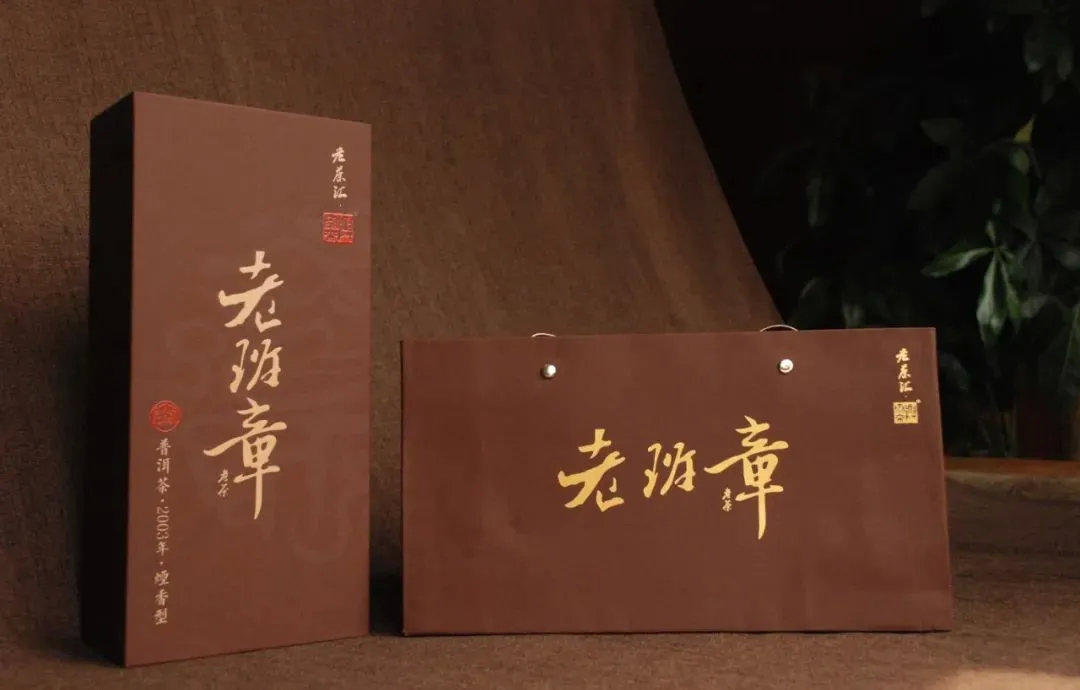 老茶汇·
老班章
老茶
普洱茶·2003年·烟香型
老茶汇·
老班章
老茶